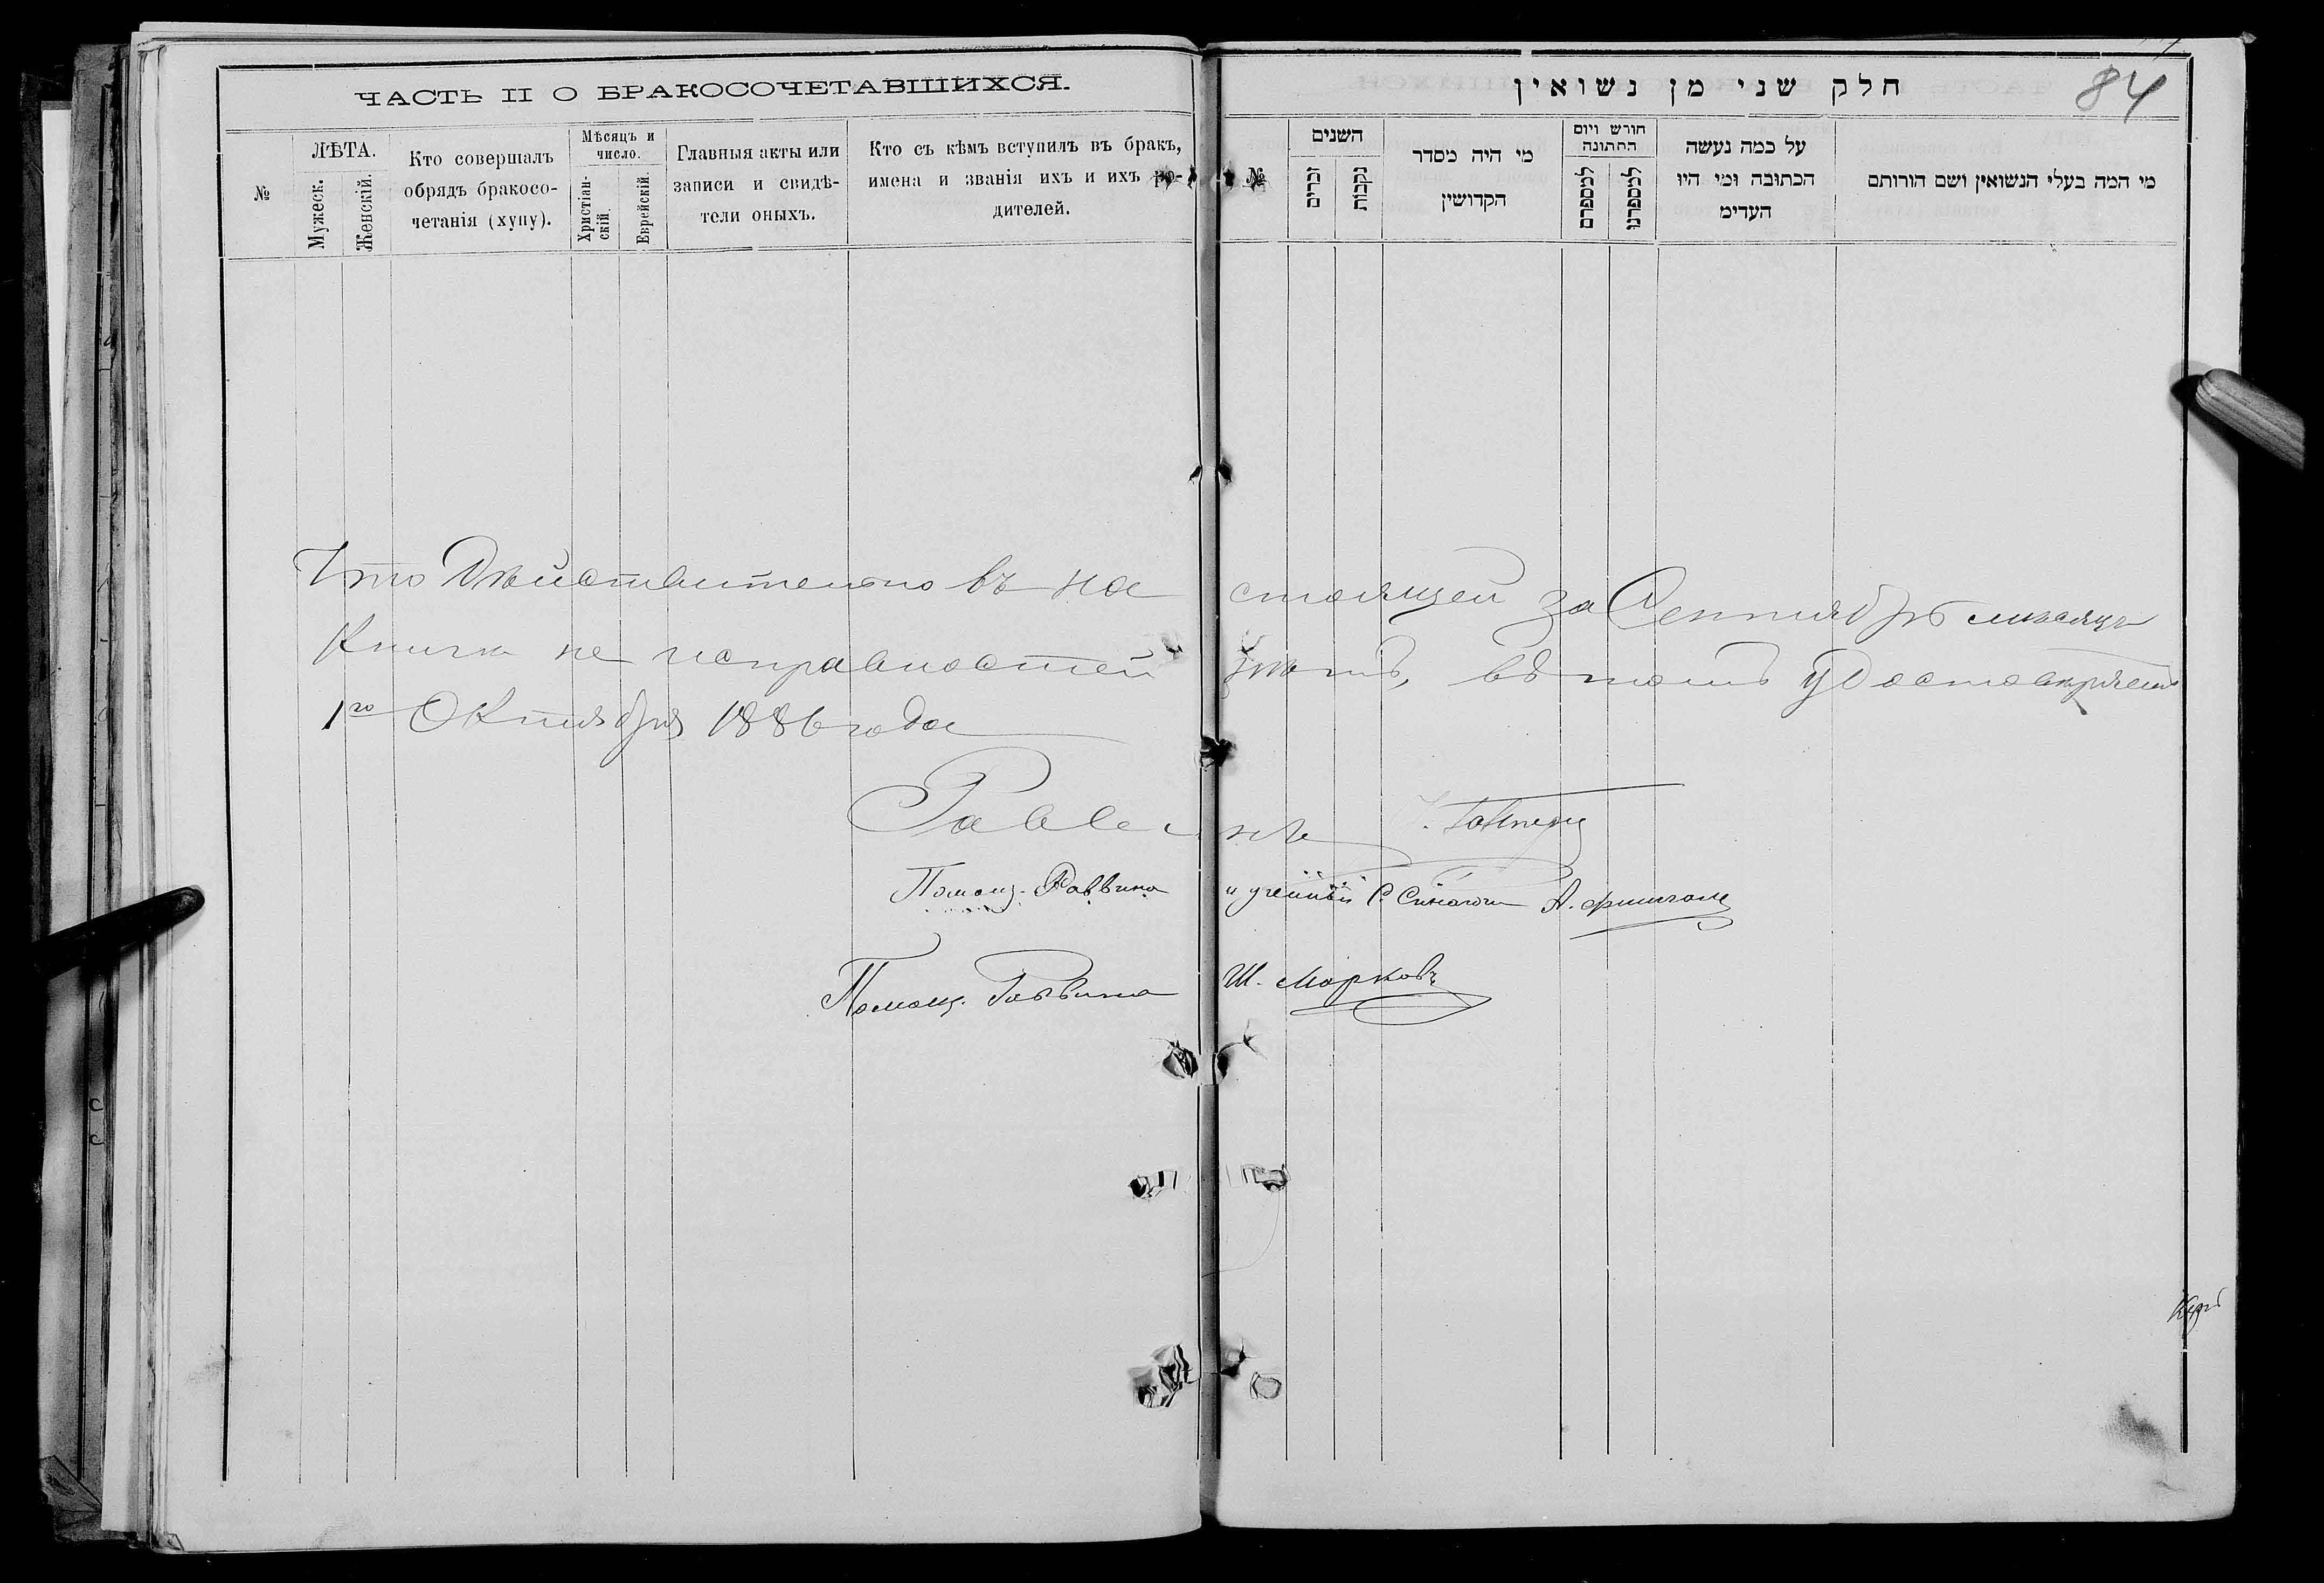 ЧАСТЬ II О БРАКОСОЧЕТАВШИХСЯ.
№
ЛѢТА.
Мужеск.
Женскій.
Кто совершалъ
обрядъ бракосо-
четанія (хупу).
Мѣсяцъ и
число.
Христіан-
скій.
Еврейскій.
Главныя акты или
записи и свидѣ-
тели оныхъ.
Кто съ кѣмъ вступилъ въ бракъ,
имена и званія ихъ и ихъ ро-
дителей.
חלק שני מן נשואין
84
№
השנים
זכרים
נקבות
מי היה מסדר
הקדושין
חורש ויום
החתונה
למספרם
למספרנו
על כמה נעשה
הכתובה ומי היו
העדימ
מי המה בעלי הנשואין ושם הורותם
Что Дѣйствительно въ настоящей за Сентябрь мѣсяцъ
Книги не исправностей нѣтъ, въ томъ удостовѣряемъ
1го Октября 1886 года
Раввинъ
Помощ. Раввина и ученый С. Синагоги А.
Помощ. Раввина Ш. Марковъ